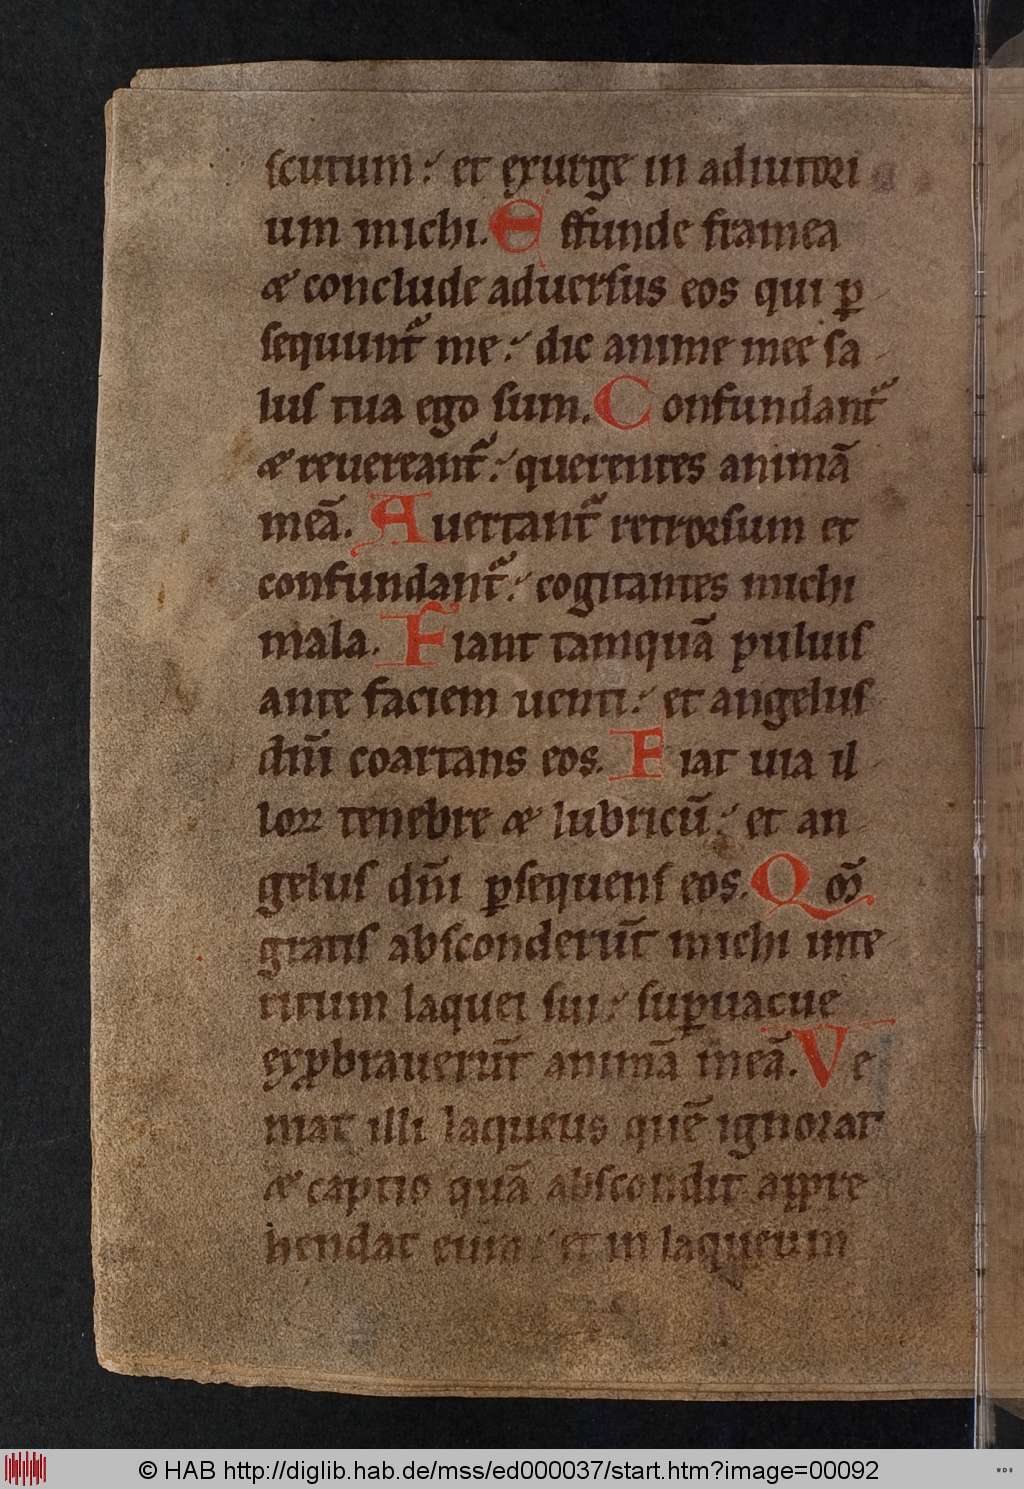 scutum: et exurge in adiutori
um michi. Effunde framea
& conclude aduersus eos qui ꝑ
sequunt᷑ me: dic anime mee sa
lus tua ego sum. Confundant᷑
& reuereant᷑: querentes animā
meā. Auertant᷑ retrorsum et
confundant᷑: cogitantes michi
mala. Fiant tamquā puluis
ante faciem uenti: et angelus
dn̄i coartans eos. Fiat uia il
loꝝ tenebre & lubricū: et an
gelus dn̄i ꝑsequens eos. Qm̄
gratis absconderūt michi inte
ritum laquei sui: suꝑuacue
exꝓbrauerūt animā meā. Ve
niat illi laqueus quē ignorat
& captio quā abscondit appre
hendat eum: et in laqueum
© HAB http://diglib.hab.de/mss/ed000037/start.htm?image=00092